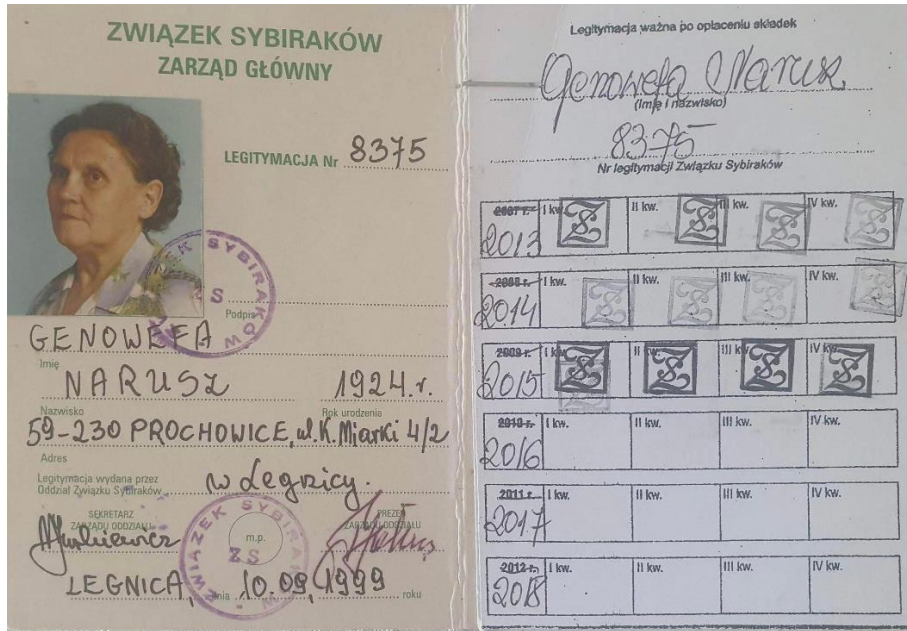 ZWIĄZEK SYBIRAKÓW
ZARZĄD GŁÓWNY
LEGITYMACJA Nr 8375
ZWIĄZEK SYBIRAKÓW
ZS
Podpis
GENOWEFA
Imię
NARUSZ 1924.r.
Nazwisko Rok urodzenia
59-230 PROCHOWICE, ul. K. Miarki 4/2
Adres
Legitymacja wydana przez
Oddział Związku Sybiraków w Legnicy.
SEKRETARZ
ZARZĄDU ODDZIAŁU
PREZES
ZARZĄDU ODDZIAŁU
ZWIĄZEK SYBIRAKÓW
m.p.
ZS
LEGNICA, dnia 10.09.1999 roku
Legitymacja ważna po opłaceniu składek
Genowefa Narusz
(Imię i nazwisko)
8375
Nr legitymacji Związku Sybiraków
2007 r. I kw. II kw. III kw. IV kw.
2013
2008 r. I kw. II kw. III kw. IV kw.
2014
2009 r. I kw. II kw. IV kw.
2015
2010 r. I kw. II kw. III kw. IV kw.
2016
2011 r. I kw. II kw. III kw. IV kw.
2017
2012 r. I kw. II kw. III kw. IV kw.
2018